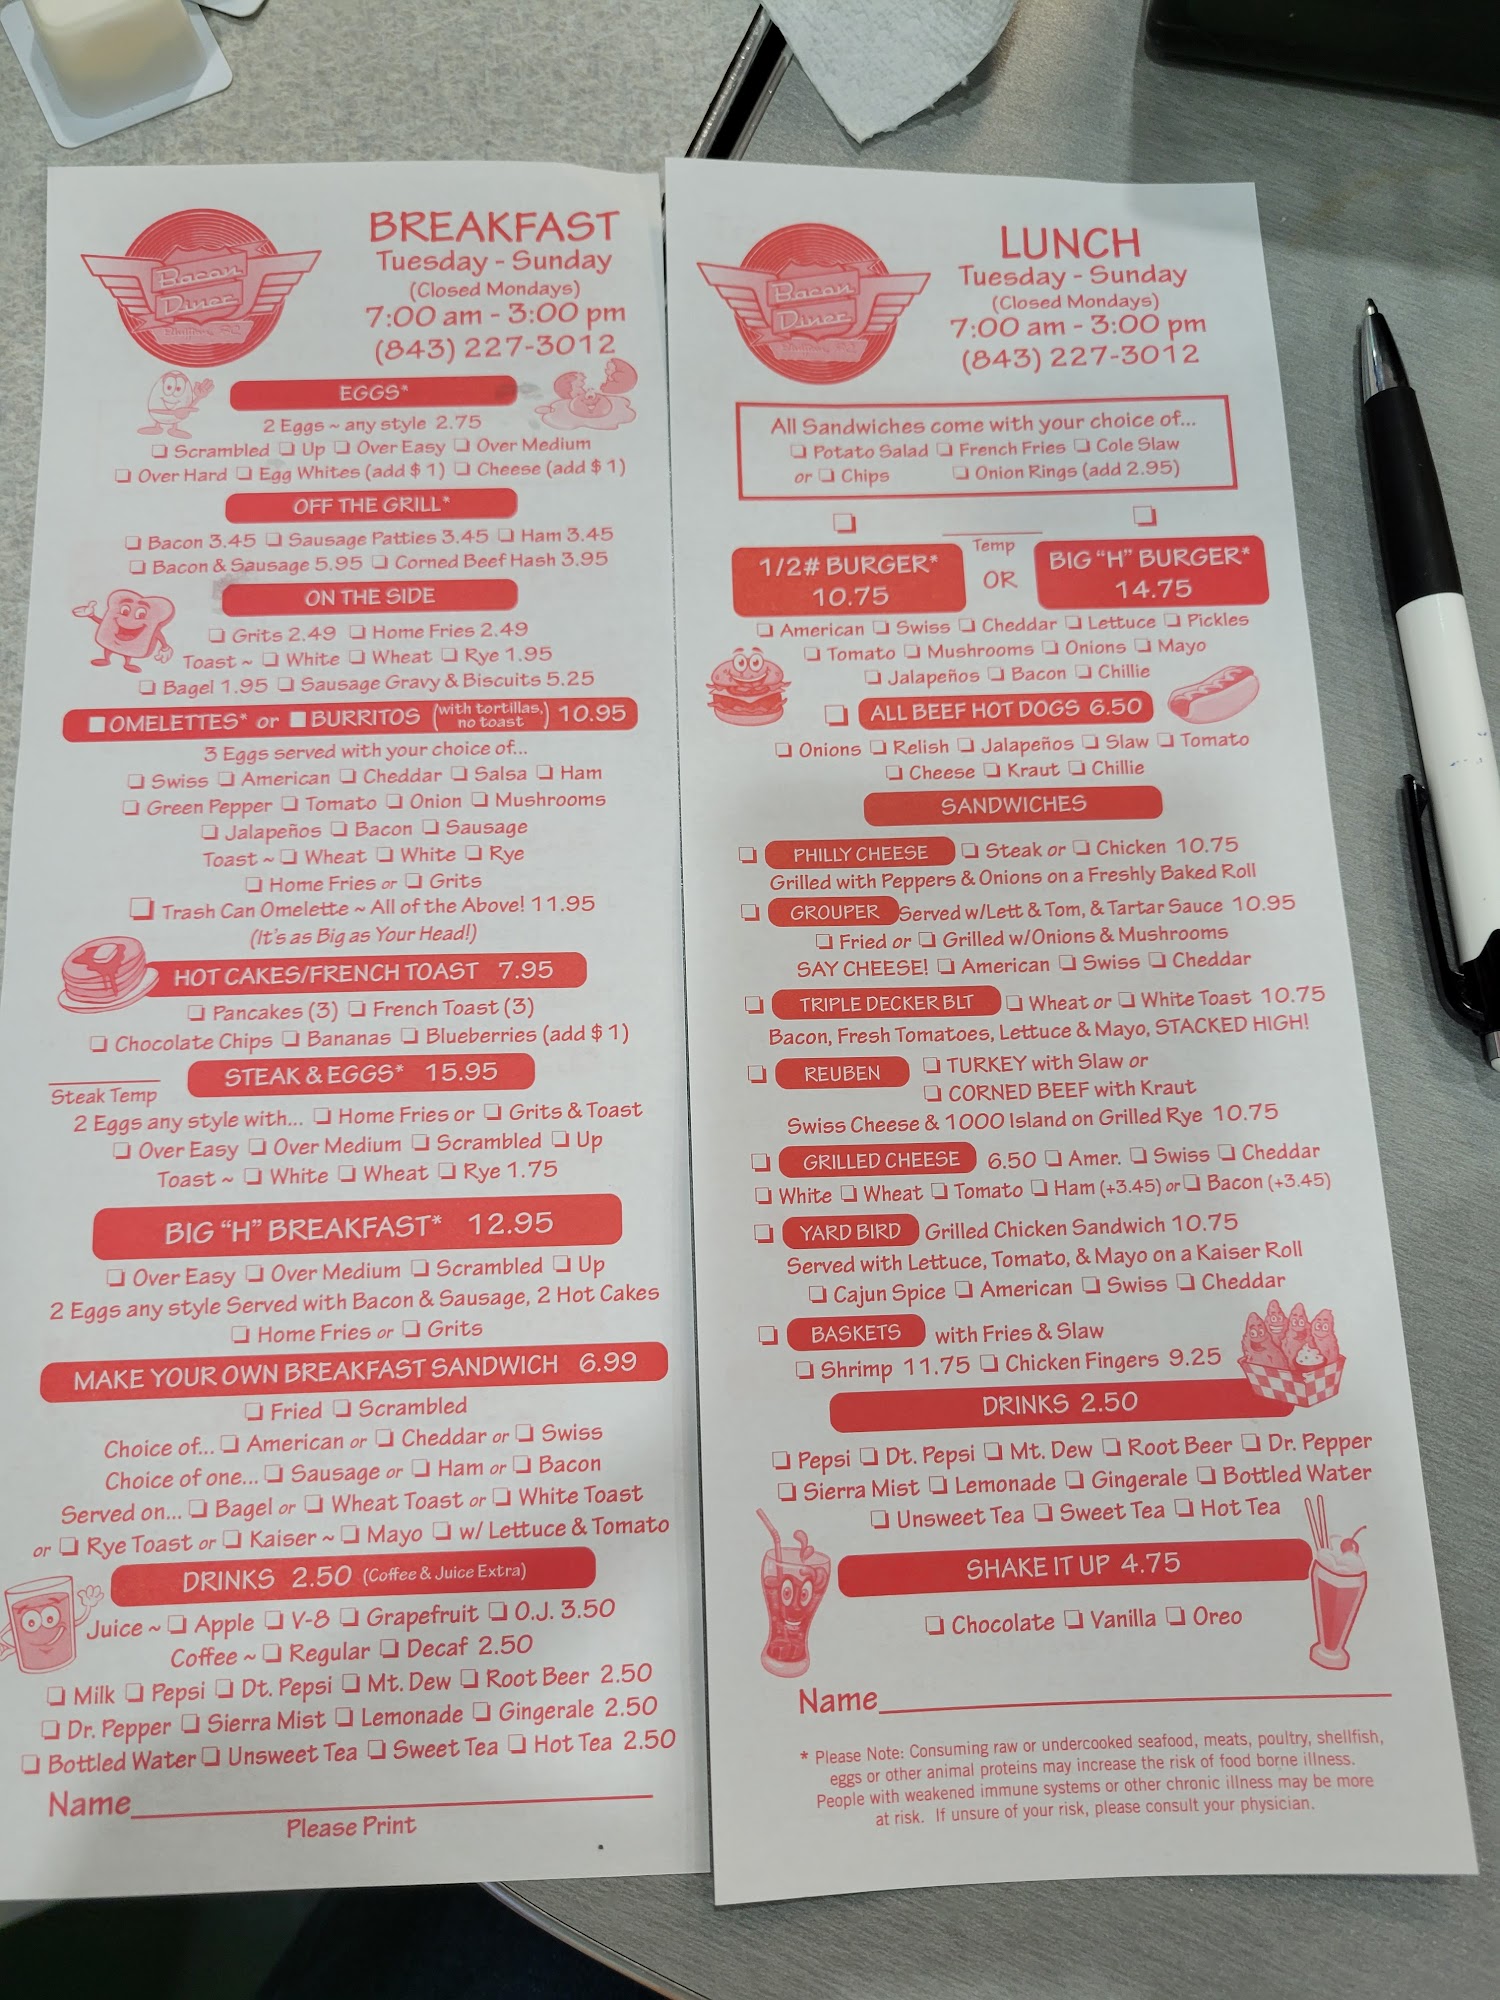 Bacon
Diner
BREAKFAST
Tuesday - Sunday
(Closed Mondays)
7:00 am - 3:00 pm
(843) 227-3012
EGGS*
2 Eggs ~ any style 2.75
❏ Scrambled ❏ Up ❏ Over Easy ❏ Over Medium
❏ Over Hard ❏ Egg Whites (add $ 1) ❏ Cheese (add $ 1)
OFF THE GRILL*
❏ Bacon 3.45 ❏ Sausage Patties 3.45 ❏ Ham 3.45
❏ Bacon & Sausage 5.95 ❏ Corned Beef Hash 3.95
ON THE SIDE
❏ Grits 2.49 ❏ Home Fries 2.49
Toast ~ ❏ White ❏ Wheat ❏ Rye 1.95
❏ Bagel 1.95 ❏ Sausage Gravy & Biscuits 5.25
■ OMELETTES* or ■ BURRITOS (with tortillas, no toast) 10.95
3 Eggs served with your choice of...
❏ Swiss ❏ American ❏ Cheddar ❏ Salsa ❏ Ham
❏ Green Pepper ❏ Tomato ❏ Onion ❏ Mushrooms
❏ Jalapeños ❏ Bacon ❏ Sausage
Toast ~ ❏ Wheat ❏ White ❏ Rye
❏ Home Fries or ❏ Grits
❏ Trash Can Omelette ~ All of the Above! 11.95
(It's as Big as Your Head!)
HOT CAKES/FRENCH TOAST 7.95
❏ Pancakes (3) ❏ French Toast (3)
❏ Chocolate Chips ❏ Bananas ❏ Blueberries (add $ 1)
STEAK & EGGS* 15.95
Steak Temp
2 Eggs any style with... ❏ Home Fries or ❏ Grits & Toast
❏ Over Easy ❏ Over Medium ❏ Scrambled ❏ Up
Toast ~ ❏ White ❏ Wheat ❏ Rye 1.75
BIG "H" BREAKFAST* 12.95
❏ Over Easy ❏ Over Medium ❏ Scrambled ❏ Up
2 Eggs any style Served with Bacon & Sausage, 2 Hot Cakes
❏ Home Fries or ❏ Grits
MAKE YOUR OWN BREAKFAST SANDWICH 6.99
❏ Fried ❏ Scrambled
Choice of... ❏ American or ❏ Cheddar or ❏ Swiss
Choice of one... ❏ Sausage or ❏ Ham or ❏ Bacon
Served on... ❏ Bagel or ❏ Wheat Toast or ❏ White Toast
or ❏ Rye Toast or ❏ Kaiser ~ ❏ Mayo ❏ w/ Lettuce & Tomato
DRINKS 2.50 (Coffee & Juice Extra)
Juice ~ ❏ Apple ❏ V-8 ❏ Grapefruit ❏ O.J. 3.50
Coffee ~ ❏ Regular ❏ Decaf 2.50
❏ Milk ❏ Pepsi ❏ Dt. Pepsi ❏ Mt. Dew ❏ Root Beer 2.50
❏ Dr. Pepper ❏ Sierra Mist ❏ Lemonade ❏ Gingerale 2.50
❏ Bottled Water ❏ Unsweet Tea ❏ Sweet Tea ❏ Hot Tea 2.50
Name
Please Print
Bacon
Diner
LUNCH
Tuesday - Sunday
(Closed Mondays)
7:00 am - 3:00 pm
(843) 227-3012
All Sandwiches come with your choice of...
❏ Potato Salad ❏ French Fries ❏ Cole Slaw
or ❏ Chips ❏ Onion Rings (add 2.95)
❏ ❏
1/2# BURGER* 10.75
Temp
OR
BIG "H" BURGER* 14.75
❏ American ❏ Swiss ❏ Cheddar ❏ Lettuce ❏ Pickles
❏ Tomato ❏ Mushrooms ❏ Onions ❏ Mayo
❏ Jalapeños ❏ Bacon ❏ Chillie
❏ ALL BEEF HOT DOGS 6.50
❏ Onions ❏ Relish ❏ Jalapeños ❏ Slaw ❏ Tomato
❏ Cheese ❏ Kraut ❏ Chillie
SANDWICHES
❏ PHILLY CHEESE ❏ Steak or ❏ Chicken 10.75
Grilled with Peppers & Onions on a Freshly Baked Roll
❏ GROUPER Served w/Lett & Tom, & Tartar Sauce 10.95
❏ Fried or ❏ Grilled w/Onions & Mushrooms
SAY CHEESE! ❏ American ❏ Swiss ❏ Cheddar
❏ TRIPLE DECKER BLT ❏ Wheat or ❏ White Toast 10.75
Bacon, Fresh Tomatoes, Lettuce & Mayo, STACKED HIGH!
❏ REUBEN ❏ TURKEY with Slaw or
❏ CORNED BEEF with Kraut
Swiss Cheese & 1000 Island on Grilled Rye 10.75
❏ GRILLED CHEESE 6.50 ❏ Amer. ❏ Swiss ❏ Cheddar
❏ White ❏ Wheat ❏ Tomato ❏ Ham (+3.45) or ❏ Bacon (+3.45)
❏ YARD BIRD Grilled Chicken Sandwich 10.75
Served with Lettuce, Tomato, & Mayo on a Kaiser Roll
❏ Cajun Spice ❏ American ❏ Swiss ❏ Cheddar
❏ BASKETS with Fries & Slaw
❏ Shrimp 11.75 ❏ Chicken Fingers 9.25
DRINKS 2.50
❏ Pepsi ❏ Dt. Pepsi ❏ Mt. Dew ❏ Root Beer ❏ Dr. Pepper
❏ Sierra Mist ❏ Lemonade ❏ Gingerale ❏ Bottled Water
❏ Unsweet Tea ❏ Sweet Tea ❏ Hot Tea
SHAKE IT UP 4.75
❏ Chocolate ❏ Vanilla ❏ Oreo
Name
* Please Note: Consuming raw or undercooked seafood, meats, poultry, shellfish,
eggs or other animal proteins may increase the risk of food borne illness.
People with weakened immune systems or other chronic illness may be more
at risk. If unsure of your risk, please consult your physician.